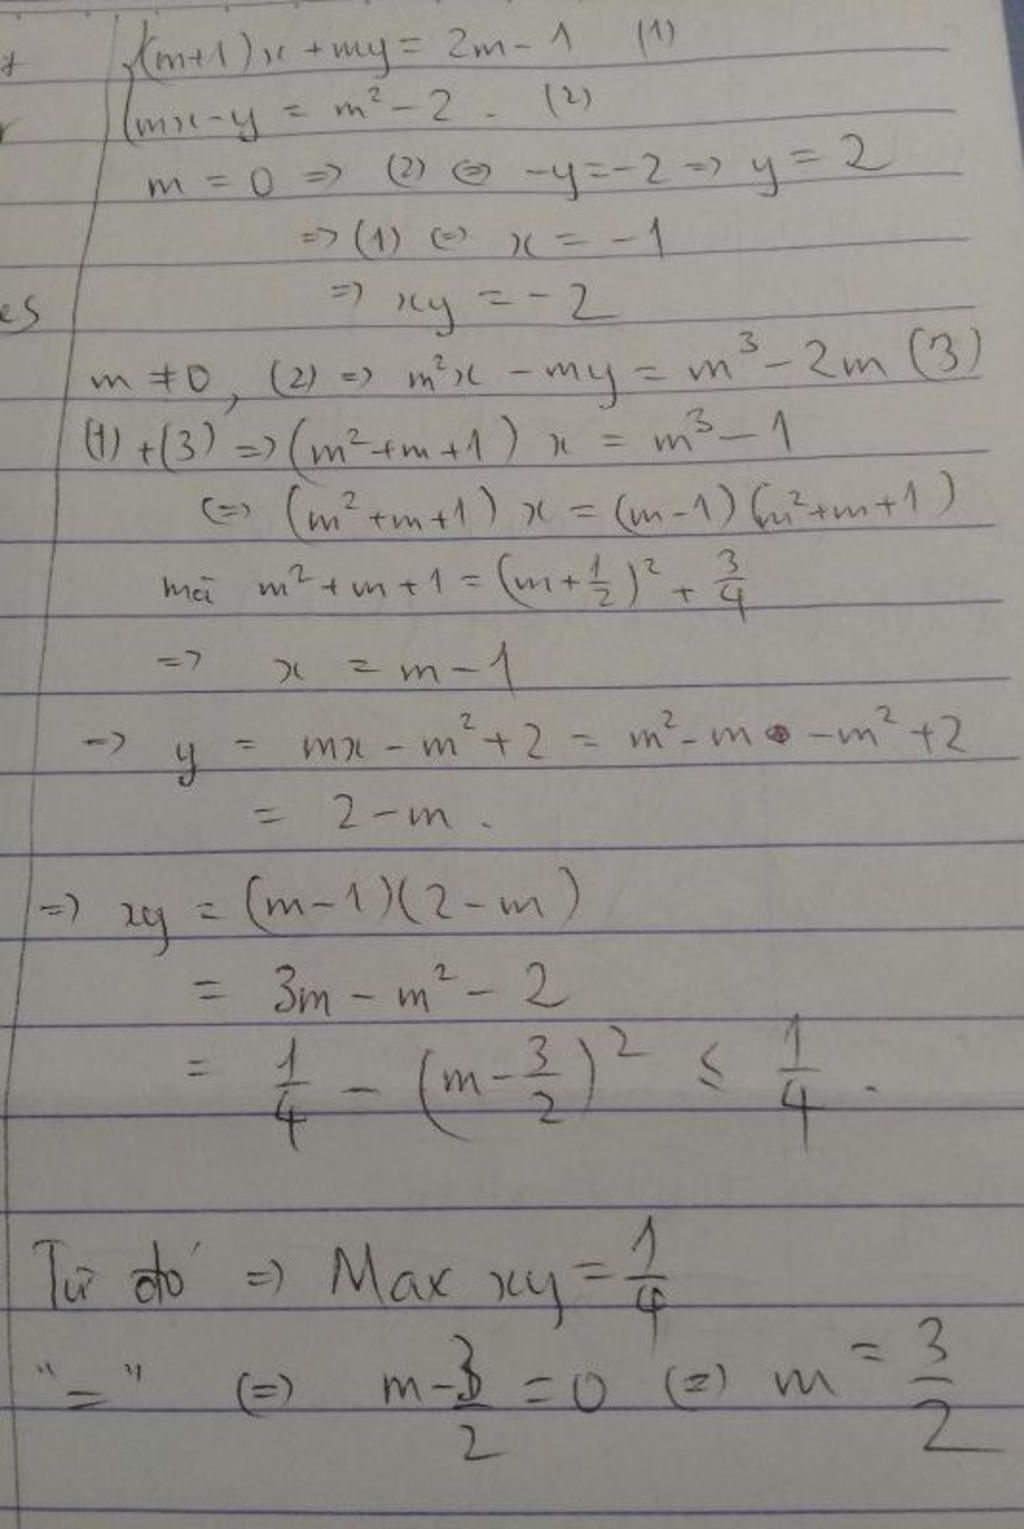 (m+1)x + my = 2m - 1 (1)
mx - y = m² - 2. (2)
m = 0 => (2) <=> -y = -2 => y = 2
=> (1) <=> x = -1
=> xy = -2
es
m ≠ 0, (2) => m²x - my = m³ - 2m (3)
(1) + (3) => (m² + m + 1) x = m³ - 1
<=> (m² + m + 1) x = (m - 1)(m² + m + 1)
mà m² + m + 1 = (m + 1/2)² + 3/4
=> x = m - 1
=> y = mx - m² + 2 = m² - m - m² + 2
= 2 - m.
=> xy = (m - 1)(2 - m)
= 3m - m² - 2
= 1/4 - (m - 3/2)² ≤ 1/4.
Từ đó => Max xy = 1/4
"=" <=> m - 3/2 = 0 <=> m = 3/2